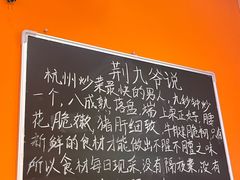 荆九爷说
杭州炒菜最快的男人,九秒钟炒
一个,八成熟落盘,端上桌正好,腰
花脆嫩,猪肝细软,牛
新鲜的食材才能做出不腥不膻之味
所以食材每日现采,没有隔夜菜,没有